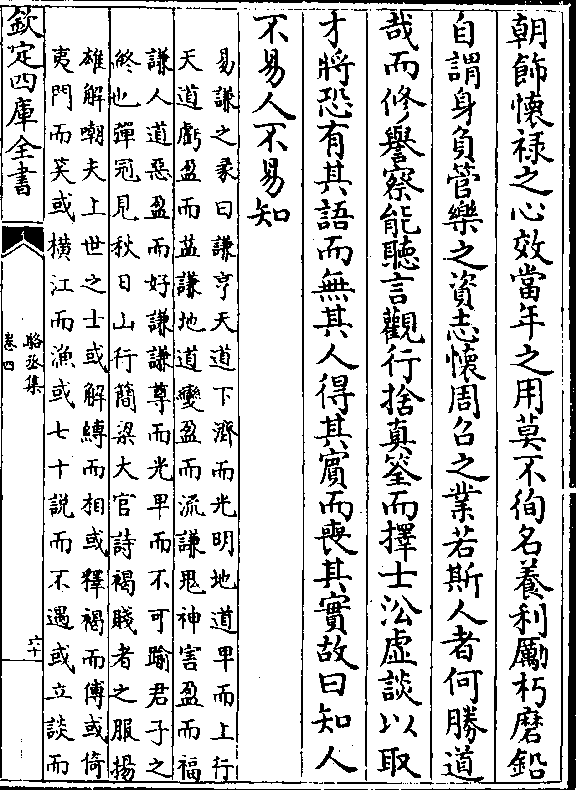 朝飾懷禄之心效當年之用莫不徇名養利勵朽磨鉛
自謂身負管樂之資志懷周召之業若斯人者何勝道
哉而修譽察能聽言觀行捨真筌而擇士㳂虛談以取
才將恐有其語而無其人得其賓而喪其實故曰知人
不易人不易知
易謙之彖曰謙亨天道下濟而光明地道卑而上行
天道虧盈而益謙地道變盈而流謙鬼神害盈而福
謙人道惡盈而好謙謙尊而光卑而不可踰君子之
終也彈冠見秋日山行簡梁大官詩褐賤者之服揚
雄解嘲夫上世之士或解縛而相或釋褐而傅或倚
夷門而笑或横江而漁或七十説而不遇或立談而
欽定四庫全書
駱丞集
卷四
六十